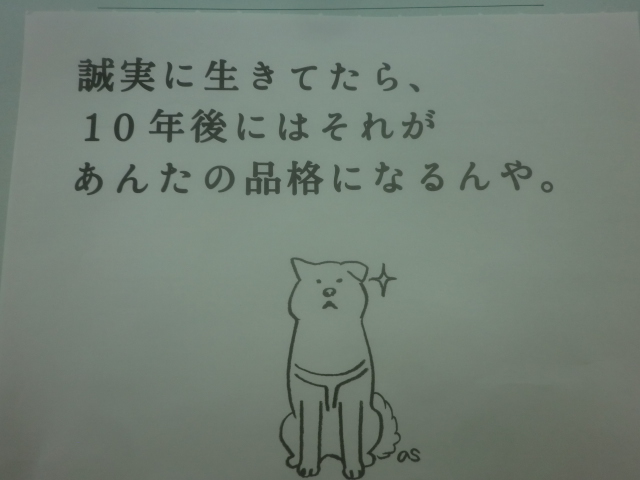 誠実に生きてたら、
10年後にはそれが
あんたの品格になるんや。
as